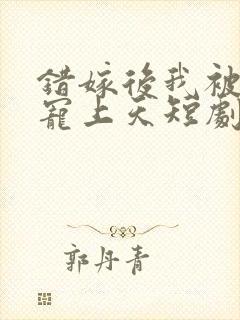 錯嫁後我被
寵上天短劇
郭丹青